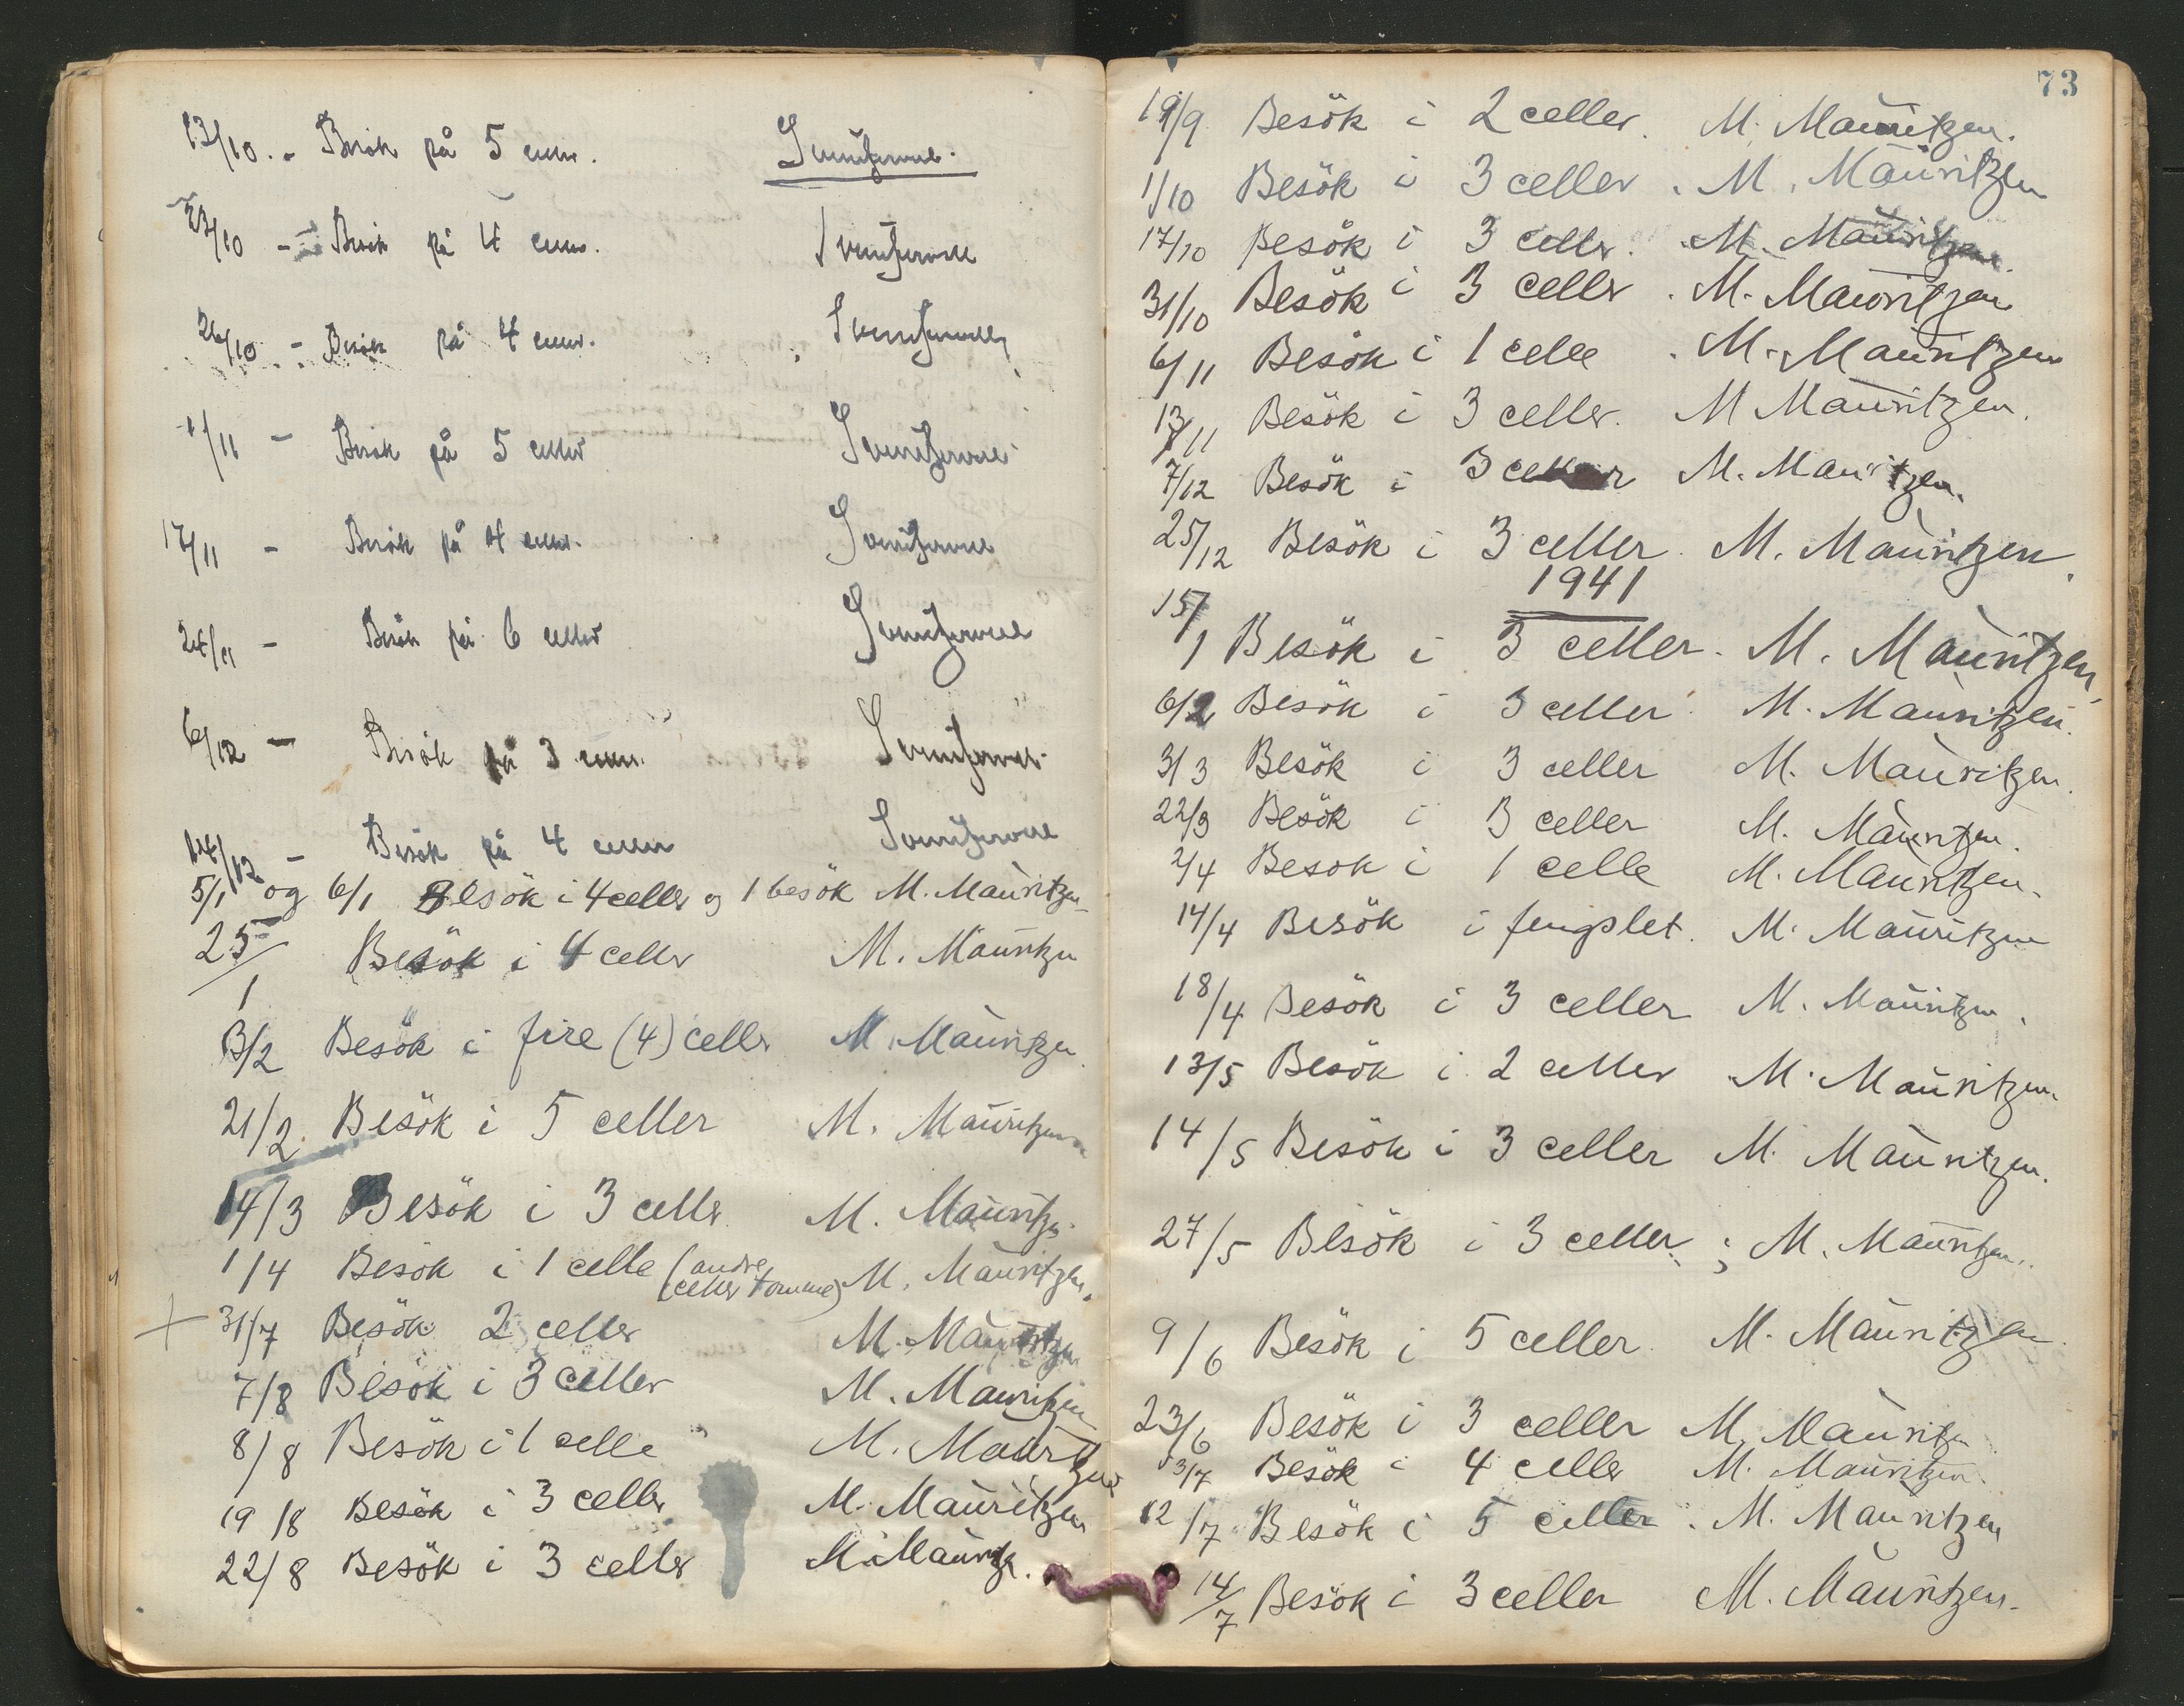 13/10. - Besök på 5 celler.
23/10 - Besök på 4 celler.
26/10 - Besök på 4 celler.
1/11 - Besök på 5 celler
17/11 - Besök på 4 celler.
24/11 - Besök på 6 celler
6/12 - Besök på 3 celler.
14/12 - Besök på 4 celler
5/1 og 6/1 Besök i 4 celler og 1 besök M. Mauritzen
25/1 Besök i 4 celler M. Mauritzen
13/2 Besök i fire (4) celler M. Mauritzen.
21/2. Besök i 5 celler M. Mauritzen
14/3 Besök i 3 celler M. Mauritzen.
1/4 Besök i 1 celle (andre celler tomme) M. Mauritzen.
+ 31/7 Besök 2 celler M. Mauritzen
7/8 Besök i 3 celler M. Mauritzen
8/8 Besök i 1 celle M. Mauritzen
19/8 Besök i 3 celler M. Mauritzen
22/8 Besök i 3 celler M. Mauritzen.
73
19/9 Besök i 2 celler. M. Mauritzen.
1/10 Besök i 3 celler. M. Mauritzen
17/10 Besök i 3 celler. M. Mauritzen.
31/10 Besök i 3 celler. M. Mauritzen
6/11 Besök i 1 celle. M. Mauritzen
13/11 Besök i 3 celler. M Mauritzen.
7/12 Besök i 3 celler M. Mauritzen.
25/12 Besök i 3 celler. M. Mauritzen.
1941
15/1 Besök i 3 celler. M. Mauritzen,
6/2 Besök i 3 celler. M. Mauritzen.
3/3 Besök i 3 celler M. Mauritzen.
22/3 Besök i 3 celler M. Mauritzen.
2/4 Besök i 1 celle M. Mauritzen.
14/4 Besök i fengslet. M. Mauritzen
18/4 Besök i 3 celler M. Mauritzen.
13/5 Besök i 2 celler M. Mauritzen.
14/5 Besök i 3 celler M. Mauritzen.
27/5 Besök i 3 celler; M. Mauritzen.
9/6 Besök i 5 celler. M. Mauritzen.
23/6 Besök i 3 celler M. Mauritzen
3/7 Besök i 4 celler M. Mauritzen.
12/7 Besök i 5 celler. M. Mauritzen
14/7 Besök i 3 celler M. Mauritzen.